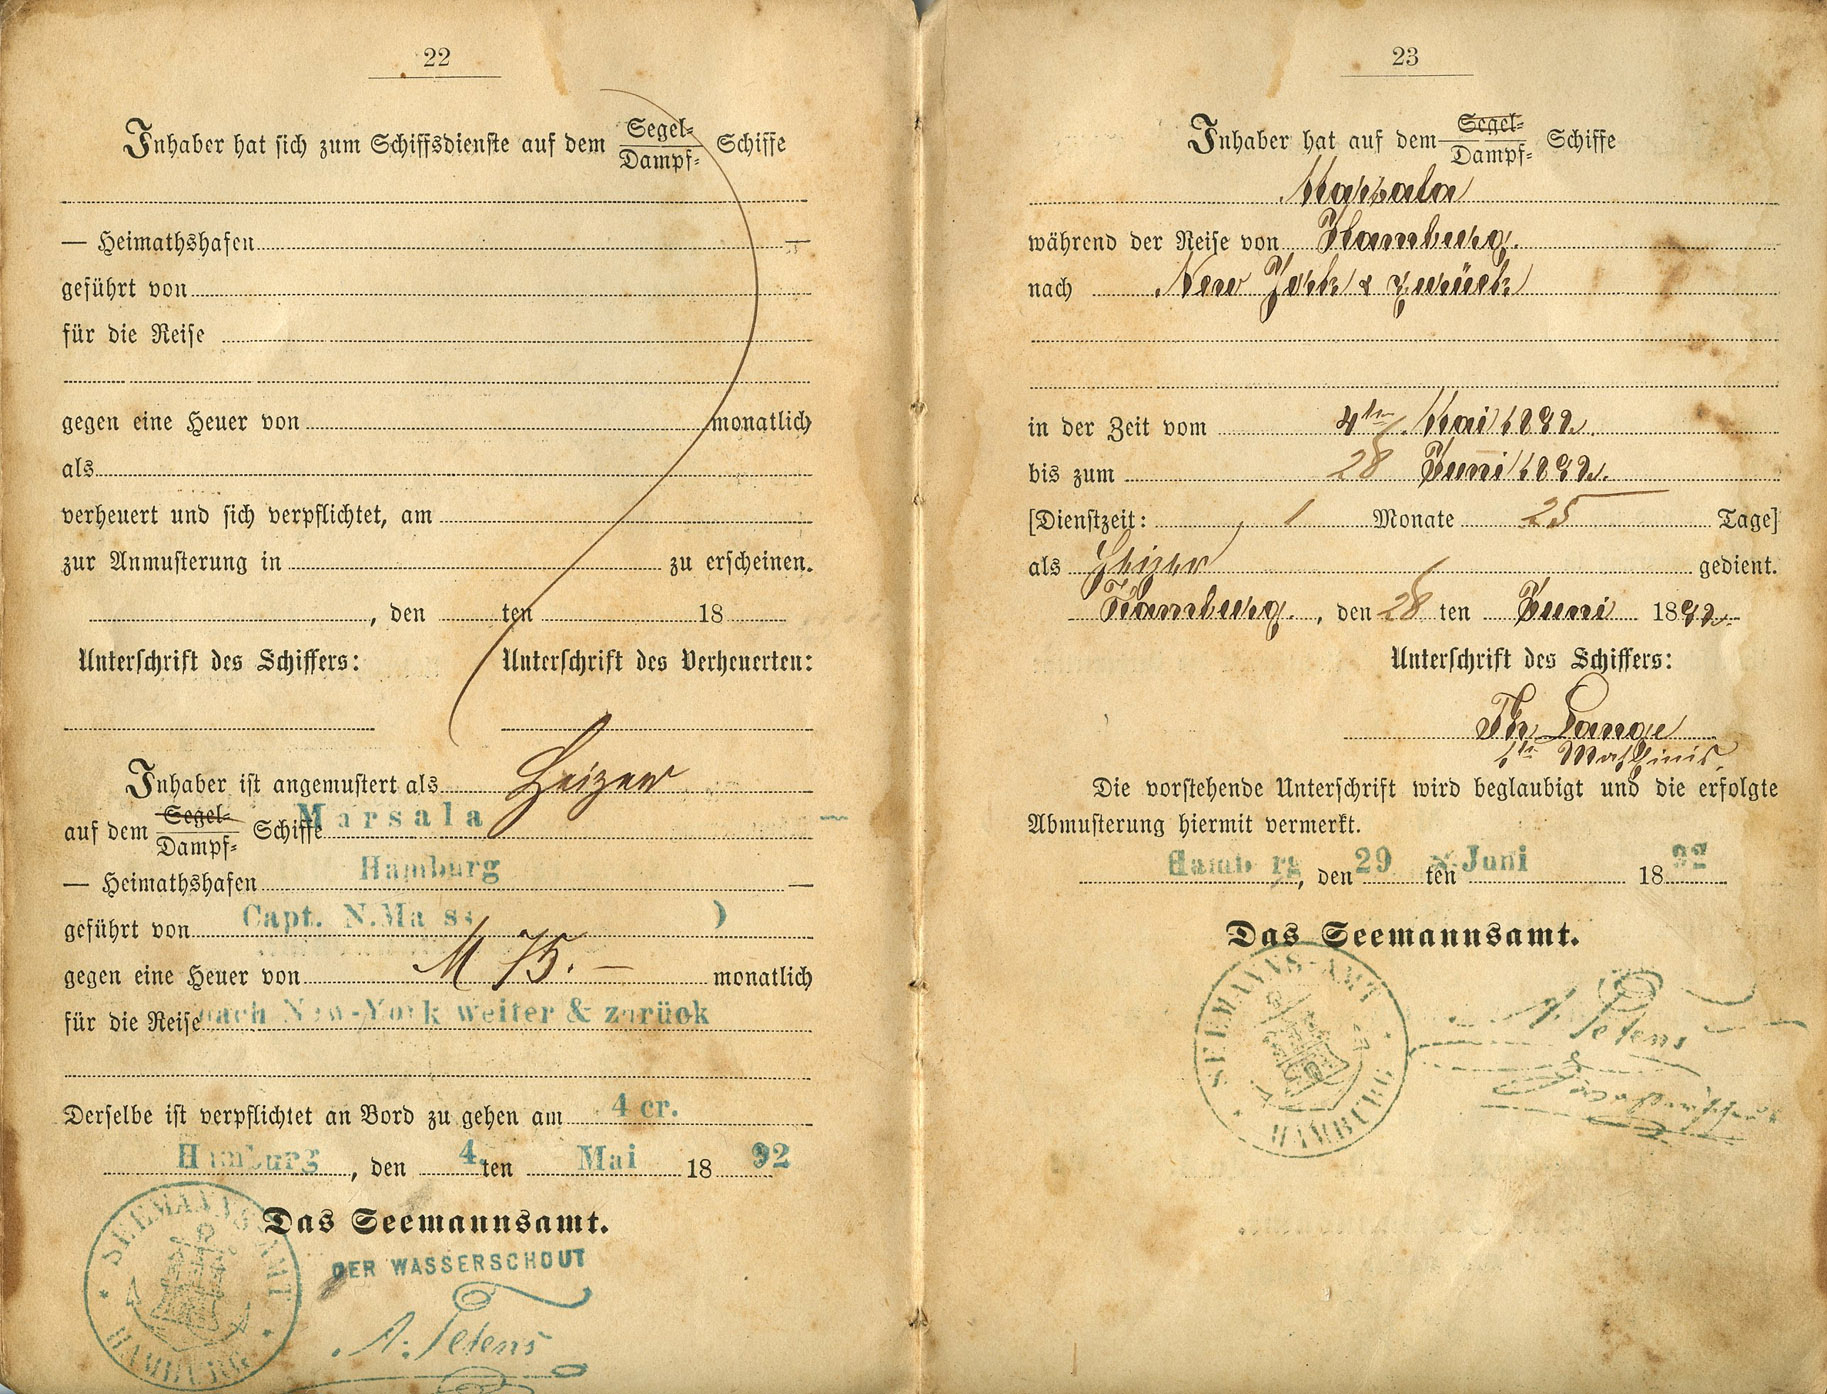 22
Inhaber hat sich zum Schiffsdienste auf dem Segel-
Dampf- Schiffe
— Heimathshafen —
geführt von
für die Reise
gegen eine Heuer von monatlich
als
verheuert und sich verpflichtet, am
zur Anmusterung in zu erscheinen.
, den ten 18
Unterschrift des Schiffers: Unterschrift des Verheuerten:
Inhaber ist angemustert als Heizer
auf dem Segel-
Dampf- Schiffe Marsala
— Heimathshafen Hamburg —
geführt von Capt. N. Mass )
gegen eine Heuer von M 75. — monatlich
für die Reise nach New-York weiter & zurück
Derselbe ist verpflichtet an Bord zu gehen am 4 cr.
Hamburg, den 4. ten Mai 18 92
Das Seemannsamt.
DER WASSERSCHOUT
A. Tetens
SEEMANNS-AMT
* HAMBURG *
23
Inhaber hat auf dem Segel-
Dampf- Schiffe
Marsala
während der Reise von Hamburg.
nach New York & zurück
in der Zeit vom 4ten Mai 1892.
bis zum 28 Juni 1892.
[Dienstzeit: 1 Monate 25 Tage]
als Heizer gedient.
Hamburg., den 28 ten Juni 1892.
Unterschrift des Schiffers:
Th. Lange
1ter Maschinist.
Die vorstehende Unterschrift wird beglaubigt und die erfolgte
Abmusterung hiermit vermerkt.
Hamburg, den 29 ten Juni 18 92
Das Seemannsamt.
SEEMANNS-AMT
* HAMBURG *
A. Tetens
Wasserschout